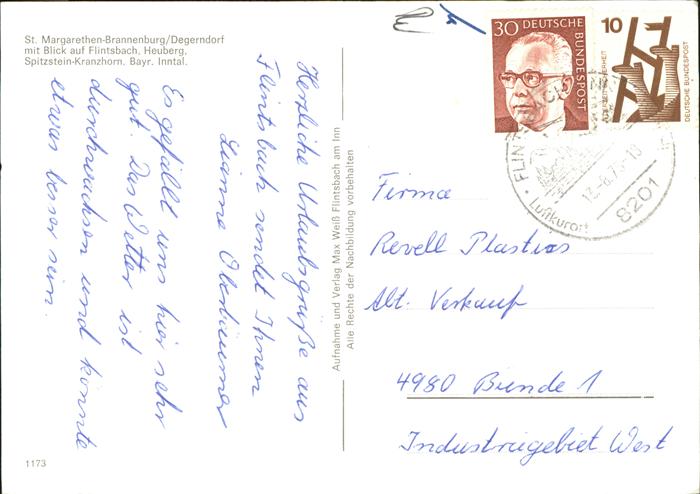 St. Margarethen-Brannenburg/Degerndorf
mit Blick auf Flintsbach, Heuberg,
Spitzstein-Kranzhorn, Bayr. Inntal.
Herzliche Urlaubsgrüße aus
Flintsbach sendet Ihnen
Lianne
Es gefällt uns hier sehr
gut. Das Wetter ist
durchwachsen und könnte
etwas besser sein.
1173
Aufnahme und Verlag Max Weiß Flintsbach am Inn
Alle Rechte der Nachbildung vorbehalten
30 DEUTSCHE BUNDESPOST
10
DEUTSCHE BUNDESPOST
Luftkurort
8201
Firma
Revell Plastics
Abt. Verkauf
4980 Bünde 1
Industriegebiet West